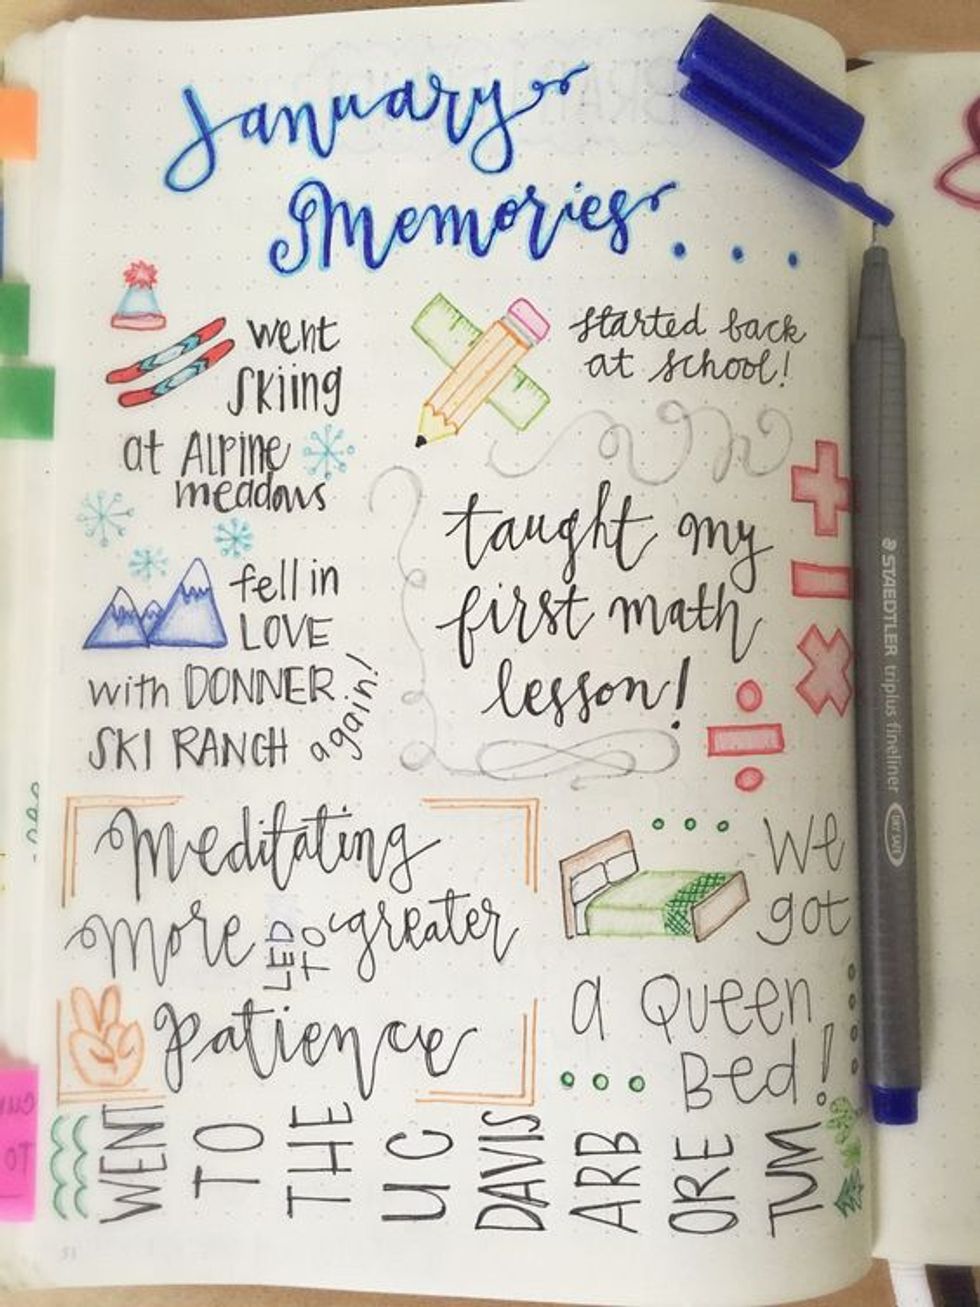 January
Memories...
went
skiing
at Alpine
meadows
fell in
LOVE
with DONNER
SKI RANCH again!
started back
at school!
taught my
first math
lesson!
Meditating
More LED TO greater
Patience
We
got
a Queen
Bed!
WENT TO THE UC DAVIS ARB ORE TUM
STAEDTLER triplus fineliner
DRY SAFE
TO
51